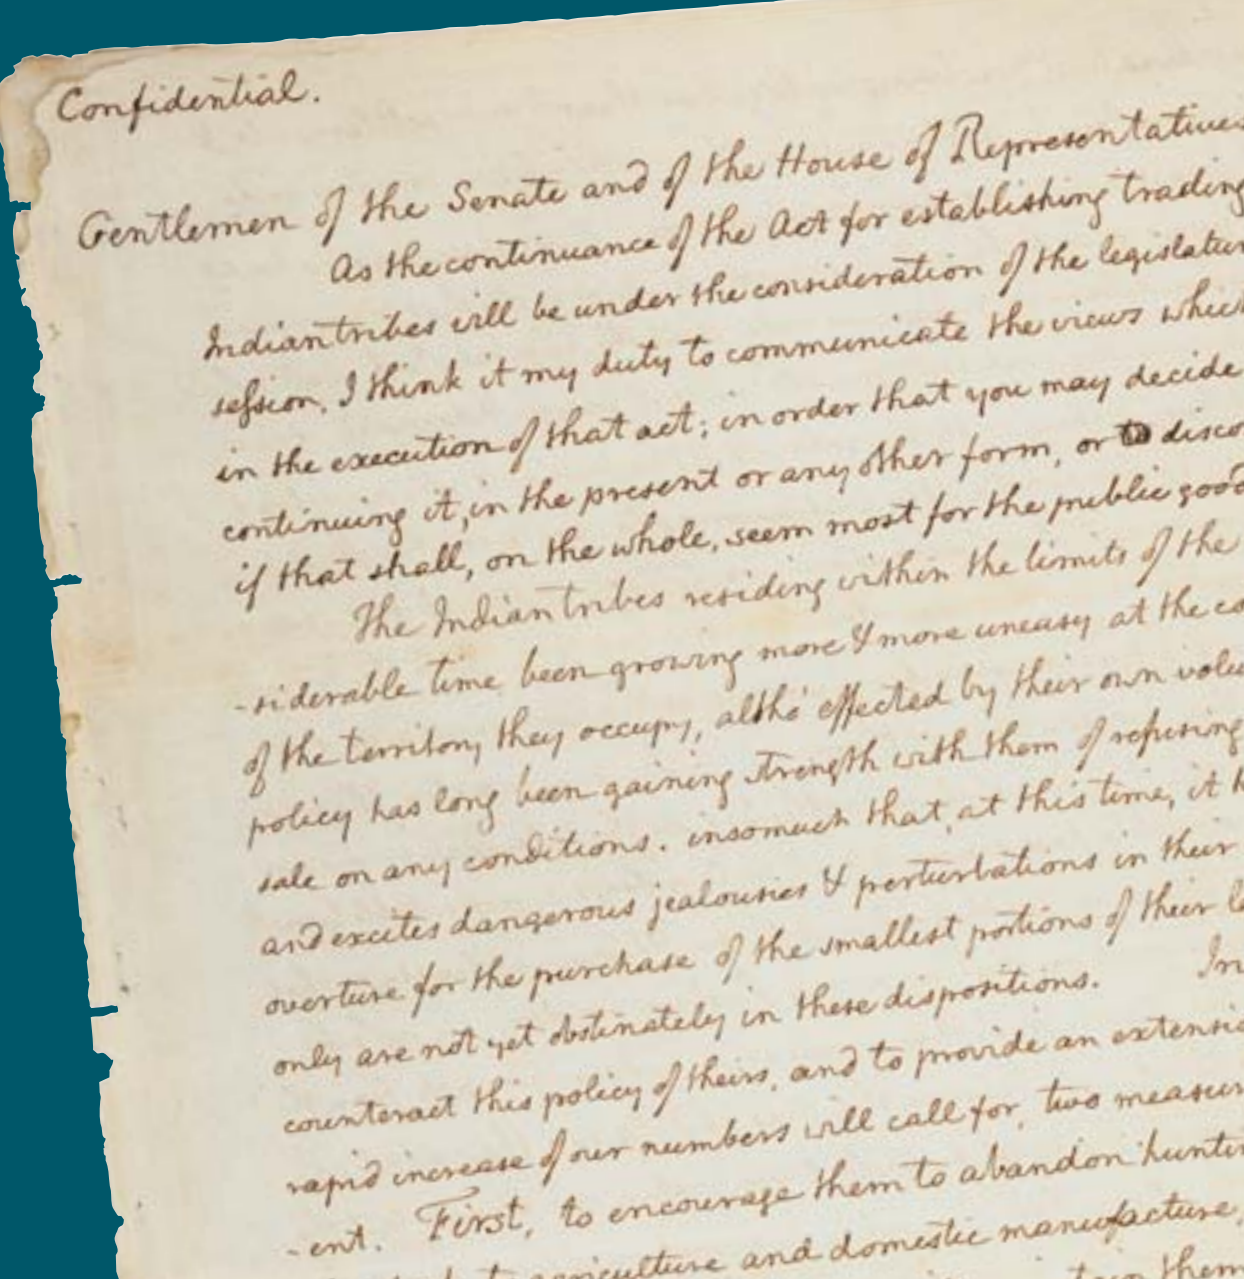 Confidential.
Gentlemen of the Senate and of the House of Representatives
As the continuance of the Act for establishing trading
Indian tribes will be under the consideration of the legislatur
session, I think it my duty to communicate the views which
in the execution of that act; in order that you may decide
continuing it, in the present or any other form, or to disco
if that shall, on the whole, seem most for the public good
The Indian tribes residing within the limits of the
-siderable time been growing more & more uneasy at the co
of the territory they occupy, altho' effected by their own volu
policy has long been gaining strength with them of refusing
sale on any conditions. insomuch that, at this time, it h
and excites dangerous jealousies & perturbations in their
overture for the purchase of the smallest portions of their la
only are not yet obstinately in these dispositions. In
counteract this policy of theirs, and to provide an extensio
rapid increase of our numbers will call for, two measur
-ent. First, to encourage them to abandon hunti
agriculture and domestic manufacture,
them